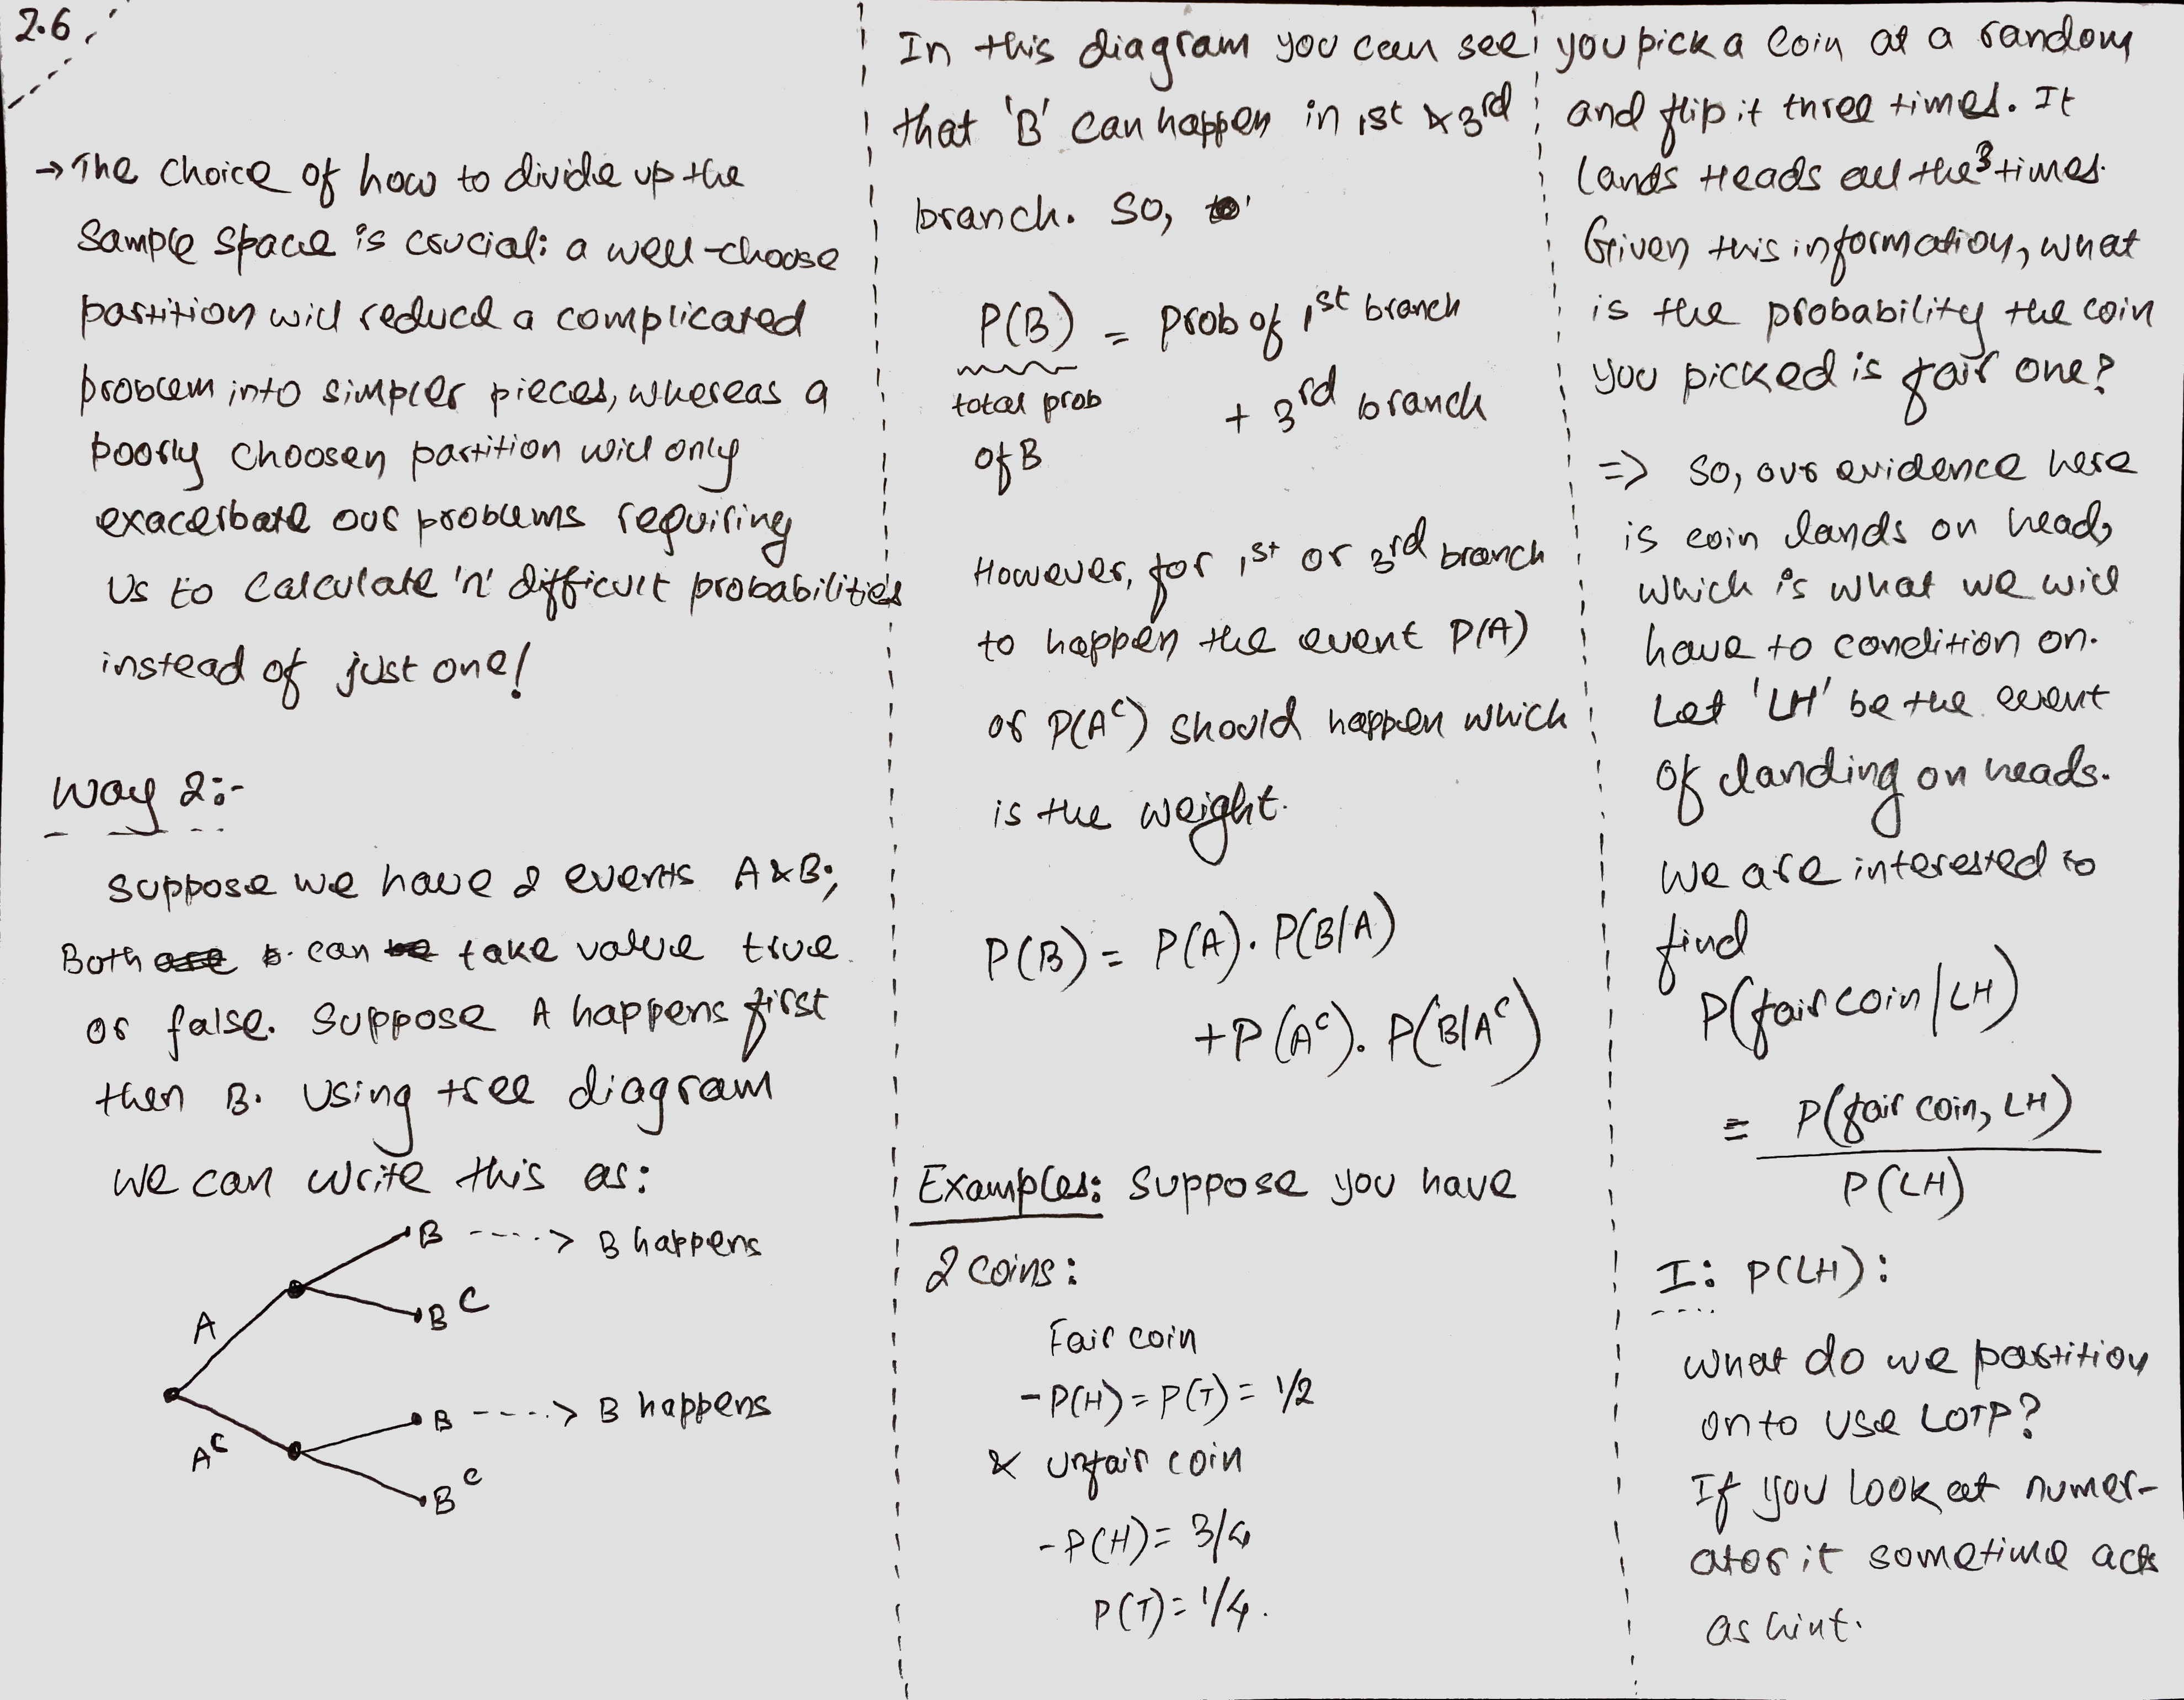 2.6
→ The choice of how to divide up the
sample space is crucial: a well-choose
partition will reduce a complicated
problem into simpler pieces, whereas a
poorly choosen partition will only
exacerbate our problems requiring
us to calculate 'n' difficult probabilities
instead of just one!
Way 2:-
Suppose we have 2 events A & B;
Both can take value true
or false. Suppose A happens first
then B. Using tree diagram
we can write this as:
B ----> B happens
A
B^C
B ----> B happens
A^C
B^C
In this diagram you can see
that 'B' can happen in 1st & 3rd
branch. So,
P(B) = Prob of 1st branch
total prob
of B
+ 3rd branch
However, for 1st or 3rd branch
to happen the event P(A)
or P(A^C) should happen which
is the weight.
P(B) = P(A). P(B/A)
+ P(A^C). P(B/A^C)
Examples: Suppose you have
2 coins:
Fair coin
- P(H) = P(T) = 1/2
& unfair coin
- P(H) = 3/4
P(T) = 1/4.
you pick a coin at a random
and flip it three times. It
lands Heads all the 3 times.
Given this information, what
is the probability the coin
you picked is fair one?
=> So, our evidence here
is coin lands on head,
which is what we will
have to condition on.
Let 'LH' be the event
of landing on heads.
We are interested to
find
P(fair coin/LH)
= P(fair coin, LH)
P(LH)
I: P(LH):
What do we partition
on to use LOTP?
If you look at numer-
ator it sometime acts
as hint.